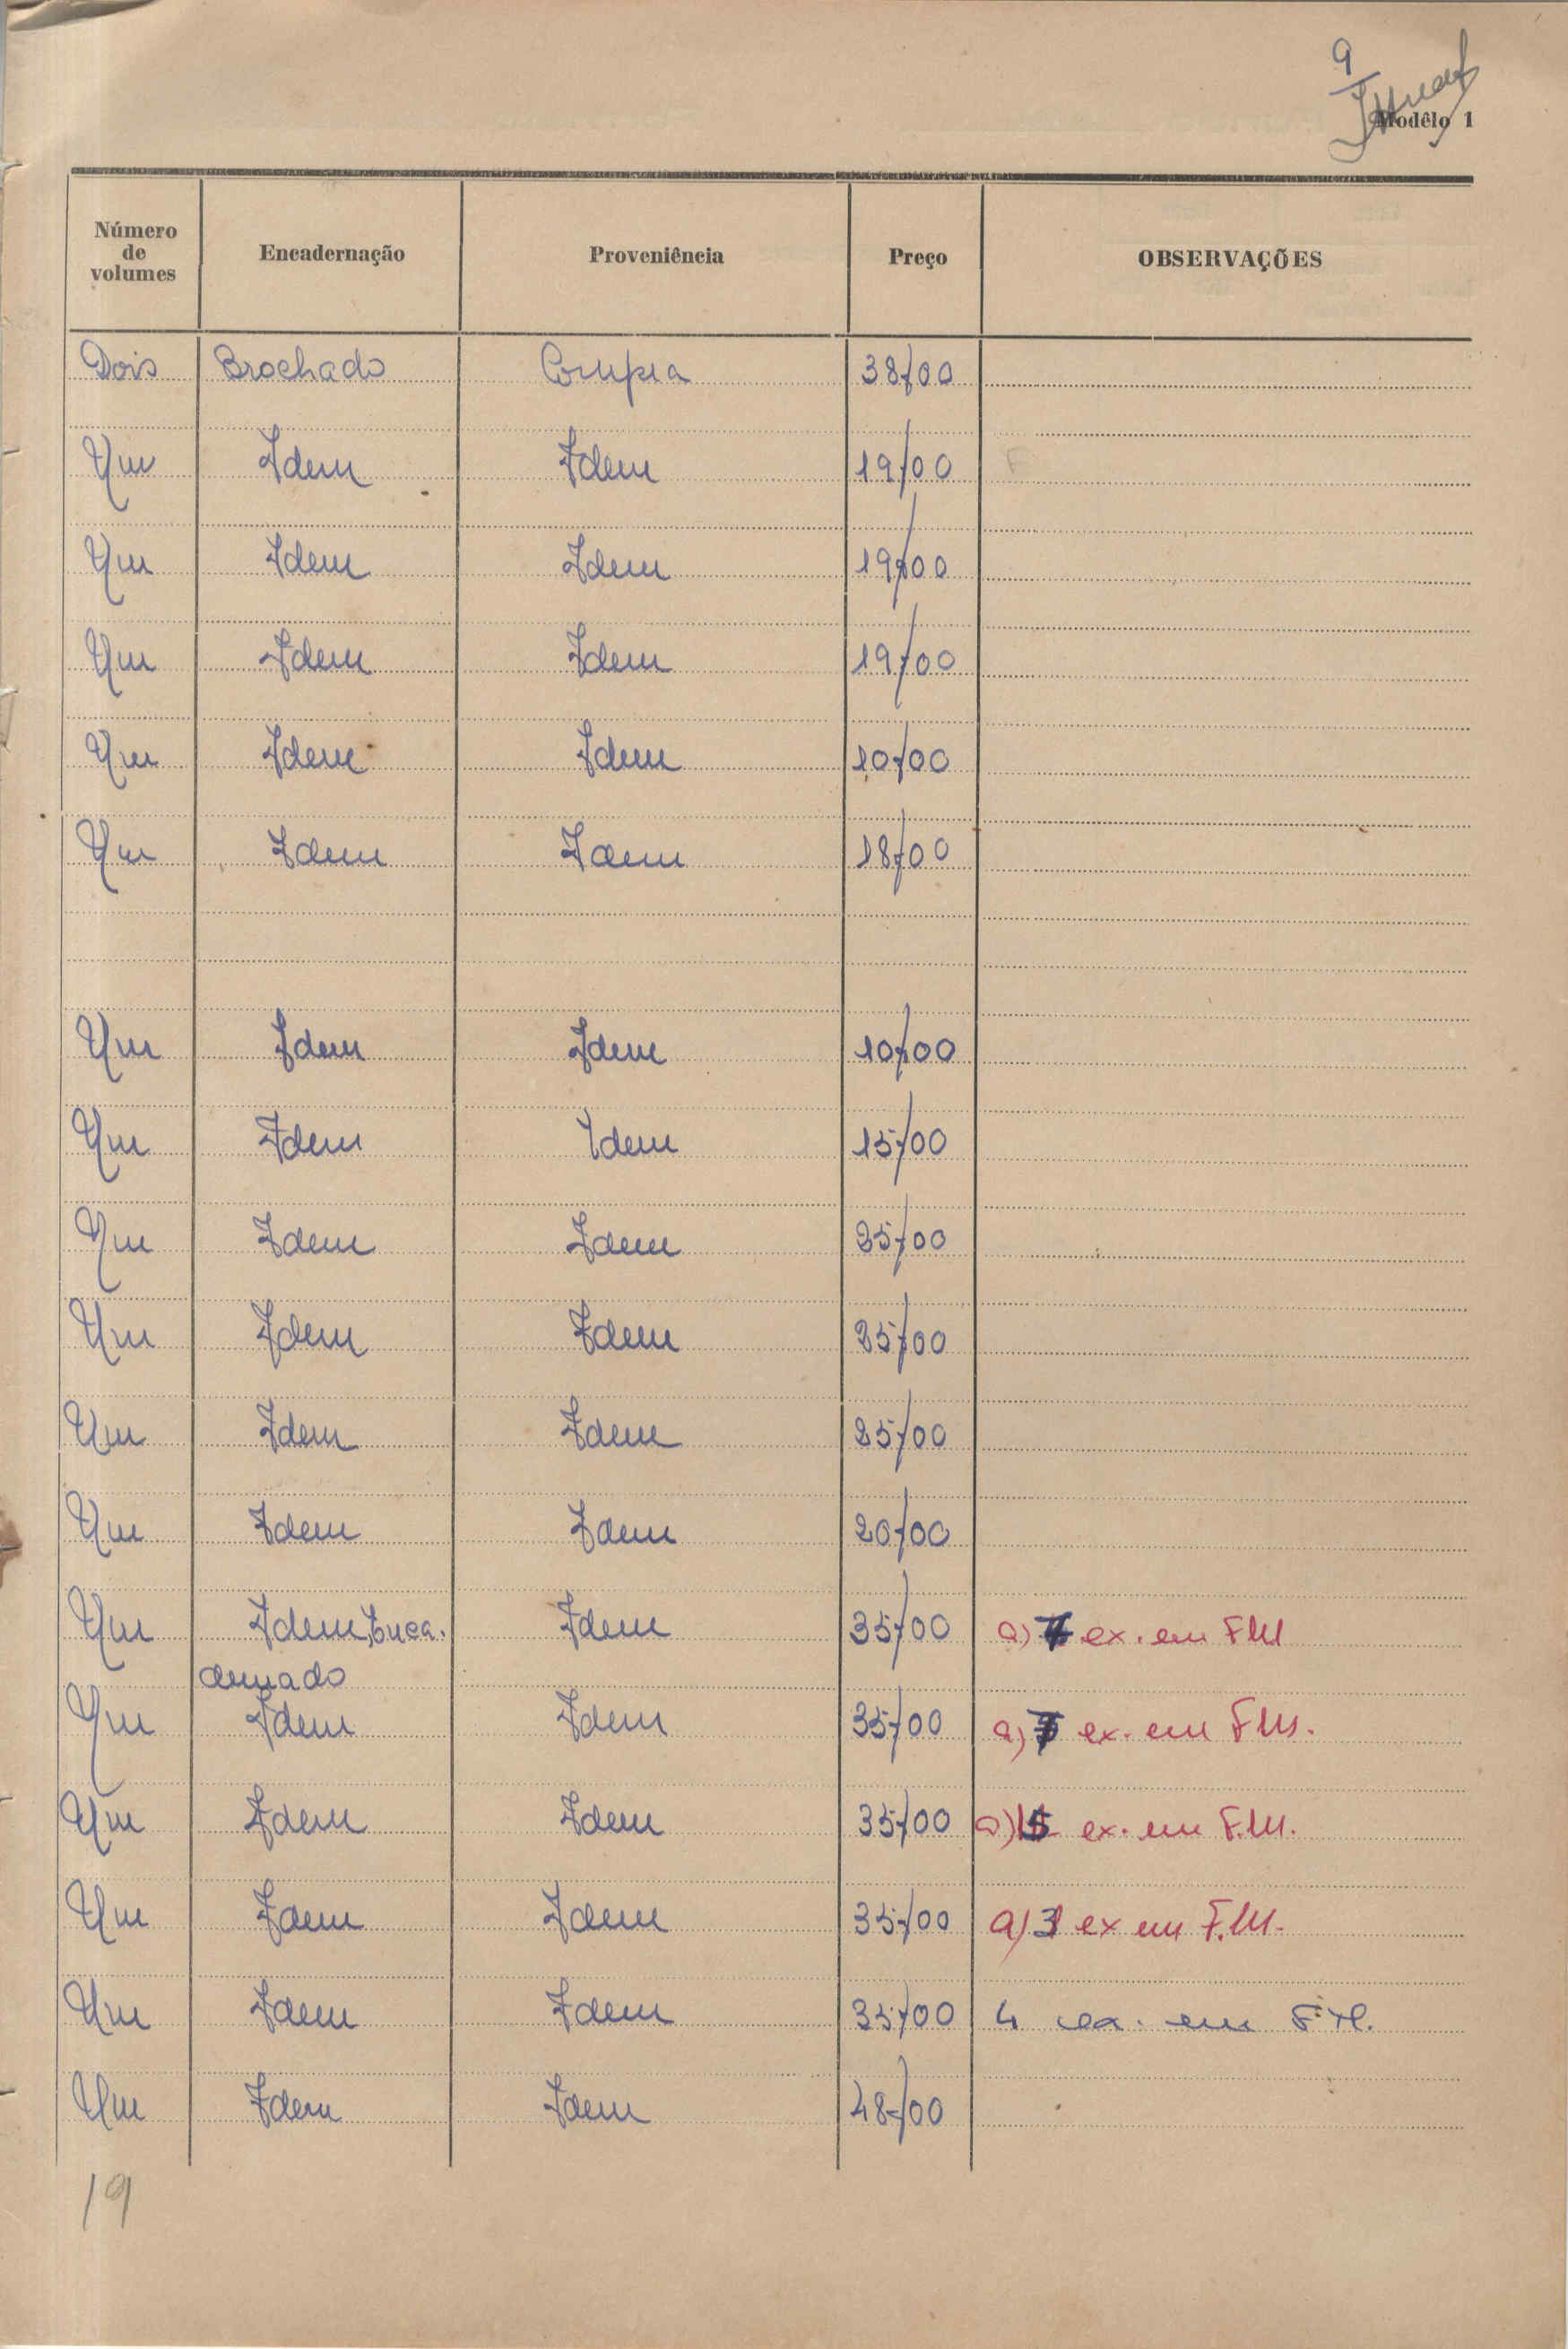 9
Modêlo 1
Número de volumes Encadernação Proveniência Preço OBSERVAÇÕES
Dois Brochado Compra 38$00
Um Idem Idem 19$00
Um Idem Idem 19$00
Um Idem Idem 19$00
Um Idem Idem 10$00
Um Idem Idem 18$00
Um Idem Idem 10$00
Um Idem Idem 15$00
Um Idem Idem 25$00
Um Idem Idem 25$00
Um Idem Idem 25$00
Um Idem Idem 20$00
Um Idem, Enca. Idem 35$00 a) ex. em F.M
dernado
Um Idem Idem 35$00 a) ex. em F.M.
Um Idem Idem 35$00 a) 5 ex. em F.M.
Um Idem Idem 35$00 a) 3 ex em F.M.
Um Idem Idem 35$00 4 ex. em F.M.
Um Idem Idem 48$00
19